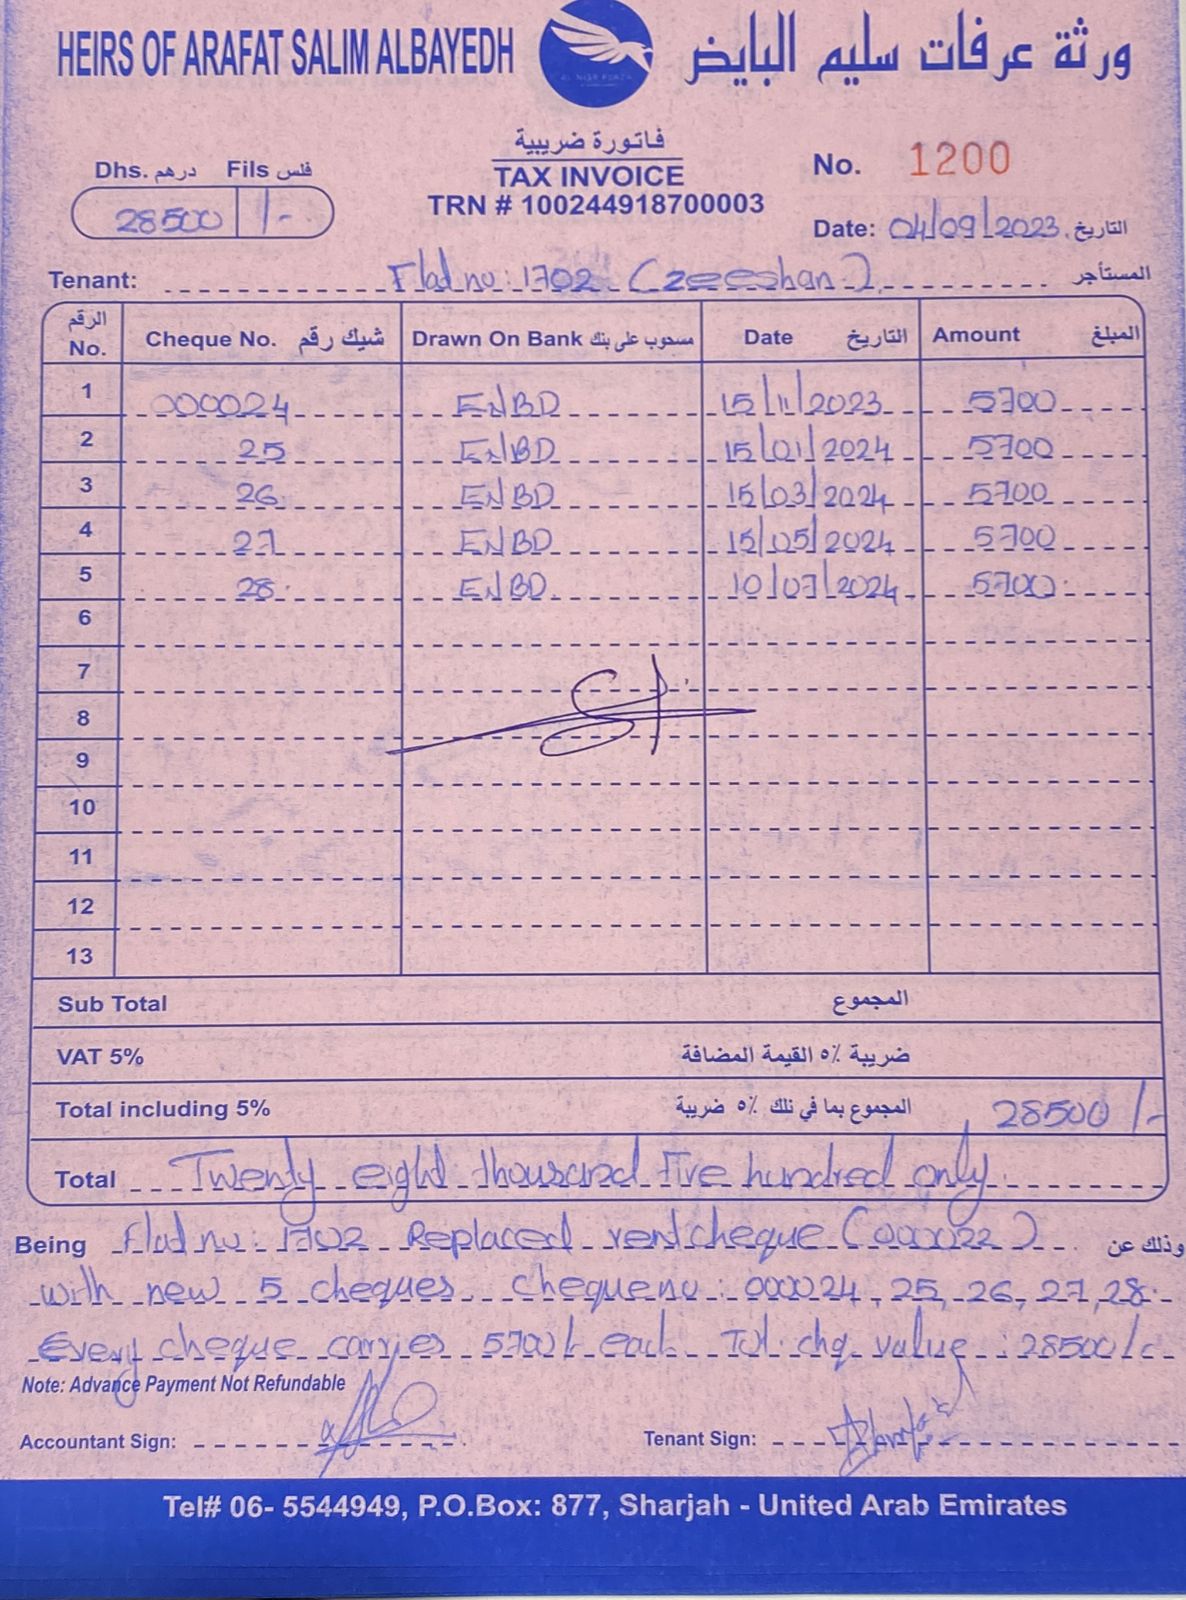 HEIRS OF ARAFAT SALIM ALBAYEDH
ورثة عرفات سليم البايض
AL NISR PLAZA
Dhs. درهم Fils فلس
28500 /-
فاتورة ضريبية
TAX INVOICE
TRN # 100244918700003
No. 1200
Date: 04/09/2023 التاريخ
Tenant: Flat no: 1702 (Zeeshan) المستأجر
الرقم No. Cheque No. شيك رقم Drawn On Bank مسحوب على بنك Date التاريخ Amount المبلغ
1 000024 ENBD 15/11/2023 5700
2 25 ENBD 15/01/2024 5700
3 26 ENBD 15/03/2024 5700
4 27 ENBD 15/05/2024 5700
5 28 ENBD 10/07/2024 5700
6
7
8
9
10
11
12
13
Sub Total المجموع
VAT 5% ضريبة ٥٪ القيمة المضافة
Total including 5% المجموع بما في ذلك ٥٪ ضريبة 28500 /-
Total Twenty eight thousand Five hundred only.
Being Flat no: 1702 Replaced rent cheque (000022) وذلك عن
with new 5 cheques cheque no: 000024, 25, 26, 27, 28.
Every cheque carries 5700/- each Tot. chq value: 28500/-
Note: Advance Payment Not Refundable
Accountant Sign:
Tenant Sign:
Tel# 06- 5544949, P.O.Box: 877, Sharjah - United Arab Emirates